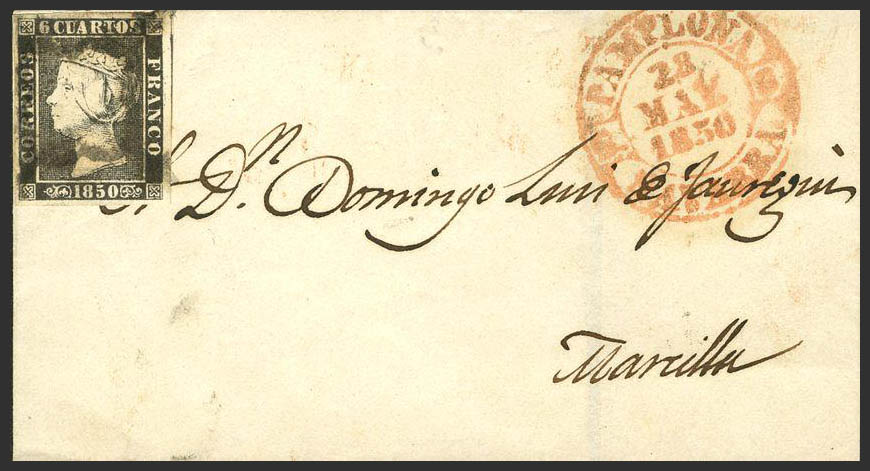 6 CUARTOS
CORREOS
FRANCO
1850
PAMPLONA
28
MAY
1850
NAVARRA
S. Dn. Domingo Luis de Jauregui
Marcilla